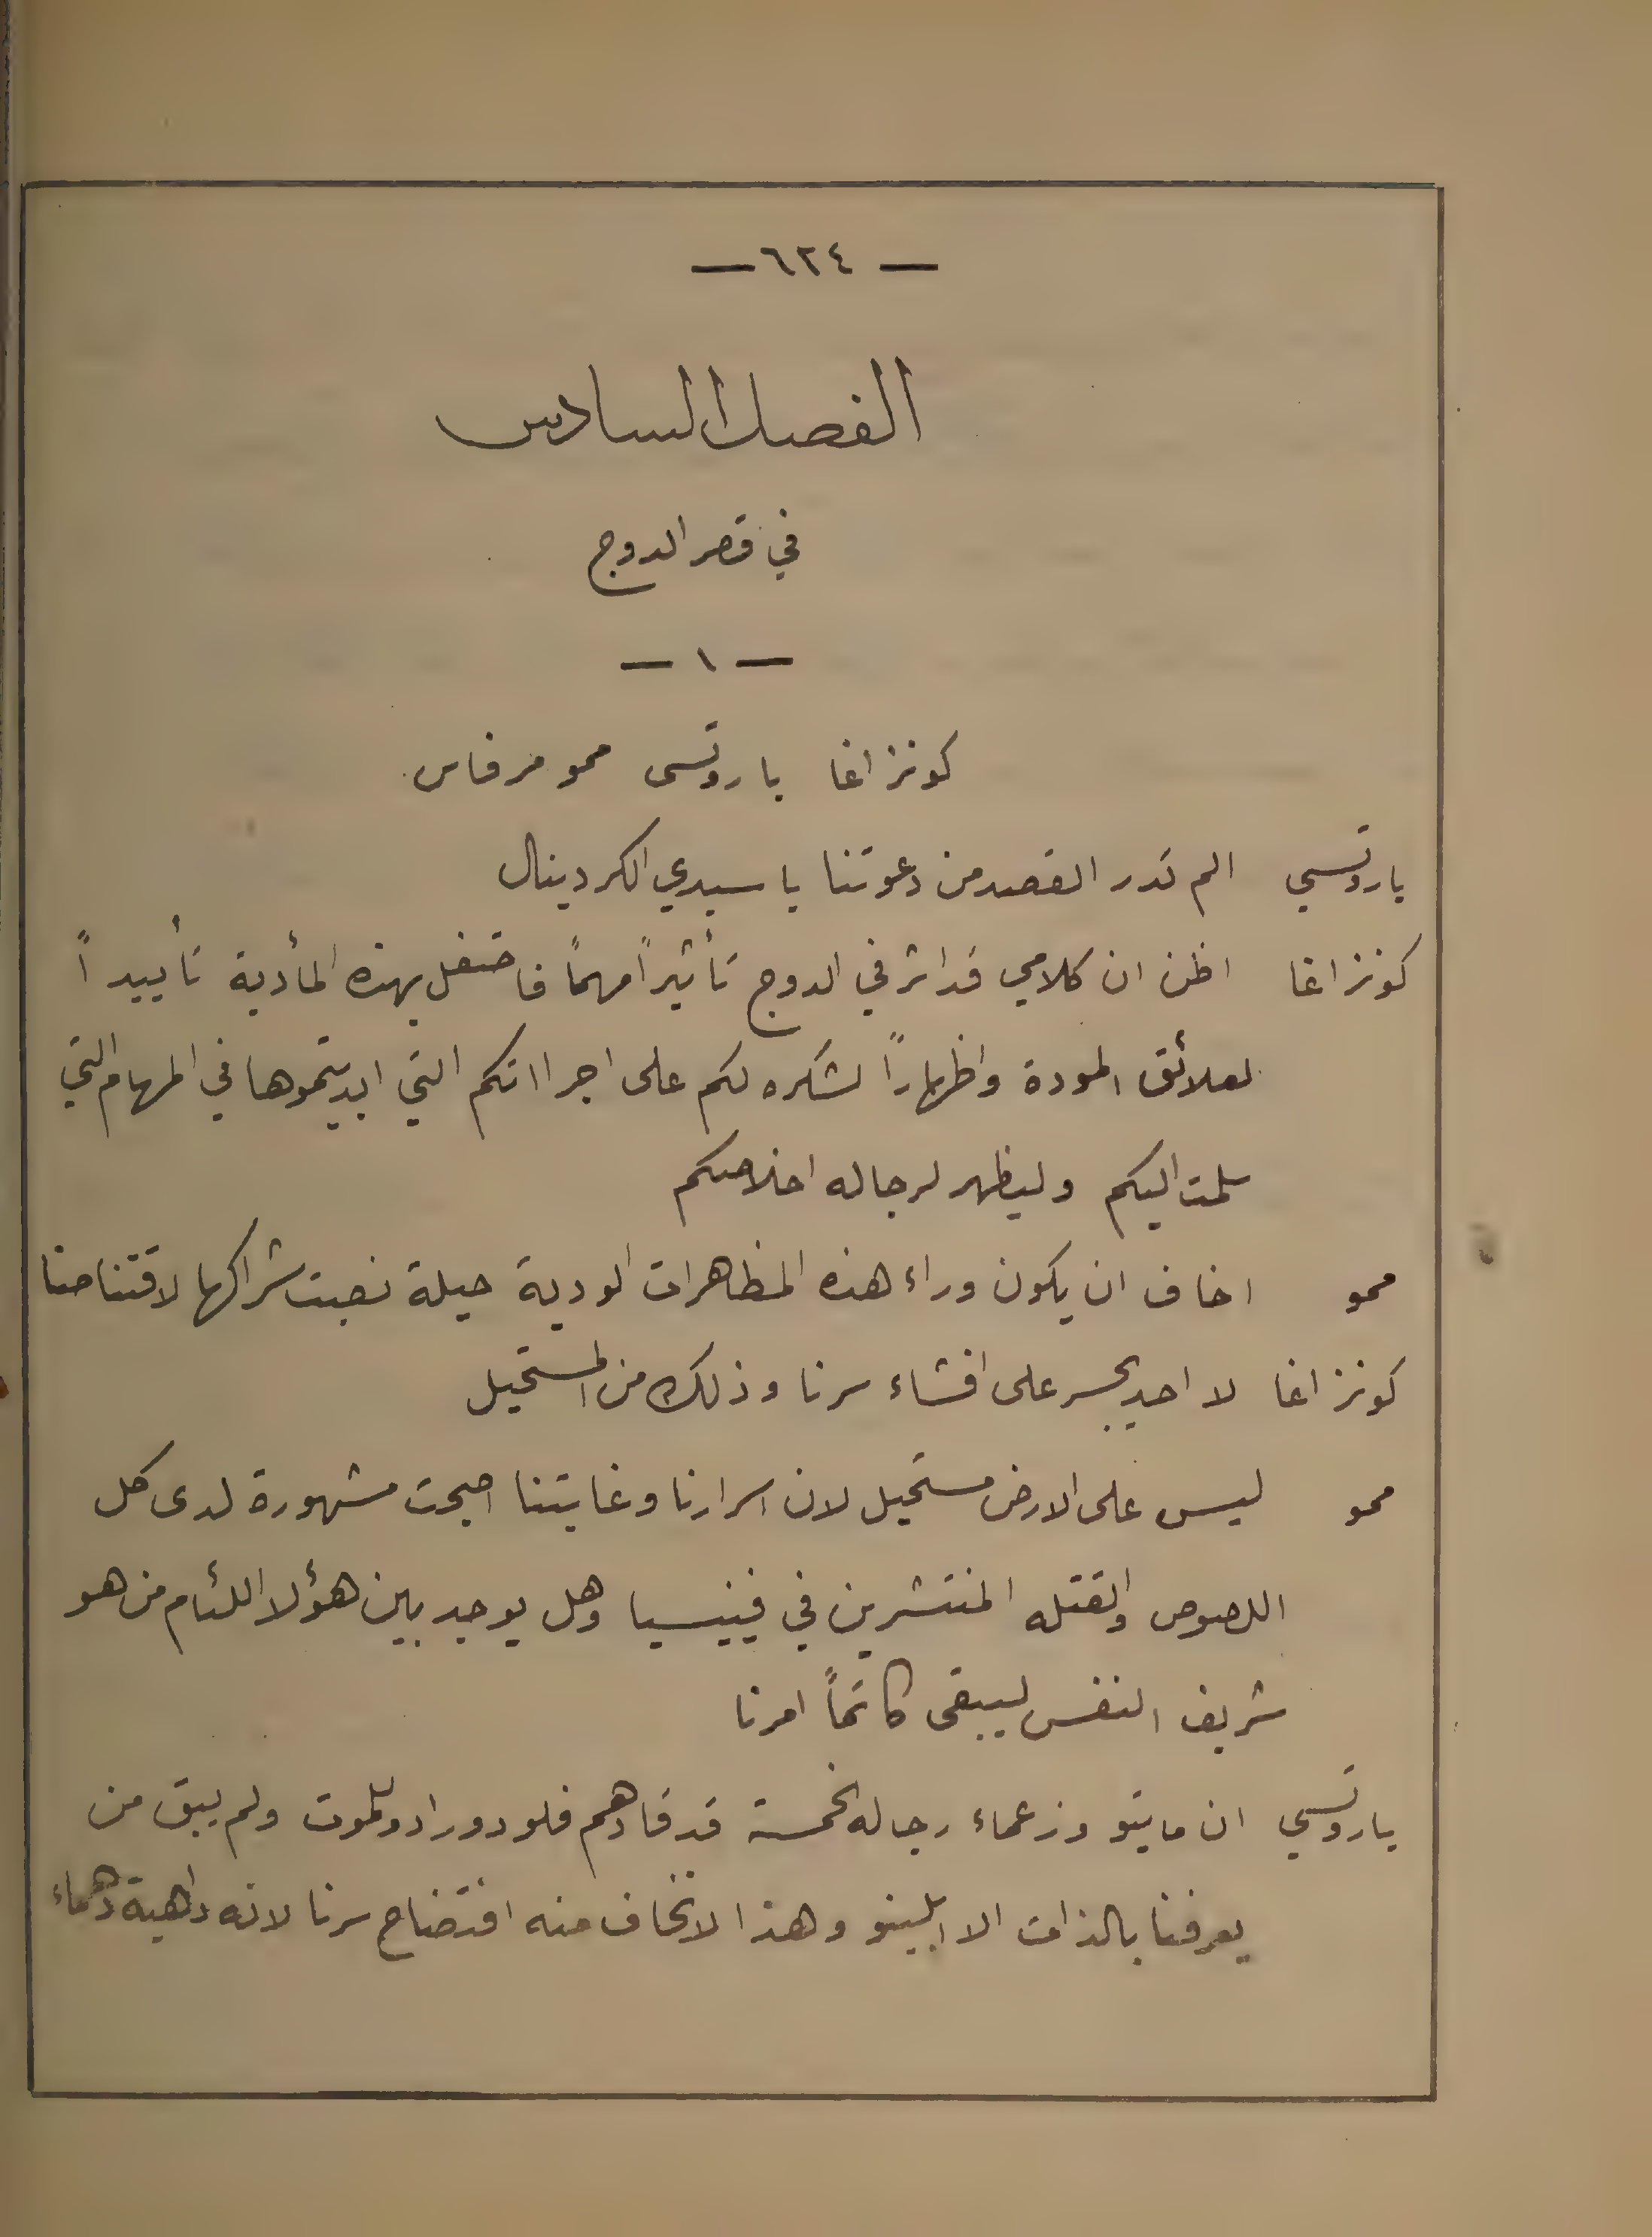 — ٦٢٤ —
الفصل السادس
في قصر الدوج
— ١ —
كونزاغا باروتسى ممو مرفاس
باروتسي الم تدر القصد من دعوتنا يا سيدي الكردينال
كونزاغا اظن ان كلامي قد اثر في الدوج تأثيراً مهماً فاحتفل بهذه المأدبة تأييداً
لعلائق المودة واظهاراً لشكره لكم على اجرااتكم التي ابديتموها في المهام التي
سلمت اليكم وليظهر لرجاله اخلاصكم
ممو اخاف ان يكون وراء هذه المظاهرات الودية حيلة نصبت شراكها لاقتناصنا
كونزاغا لا احد يجسر على افشاء سرنا وذلك من المستحيل
ممو ليس على الارض مستحيل لان اسرارنا وغايتنا اصبحت مشهورة لدى كل
اللصوص والقتله المنتشرين في فينيسيا وهل يوجد بين هؤلا اللئام من هو
شريف النفس ليبقى كاتماً امرنا
باروتسي ان ماتيو وزعماء رجاله الخمسة قد قادهم فلودورادو للموت ولم يبق من
يعرفنا بالذات الا ابلينو وهذا لا نخاف منه افتضاح سرنا لانه داهية دهماء